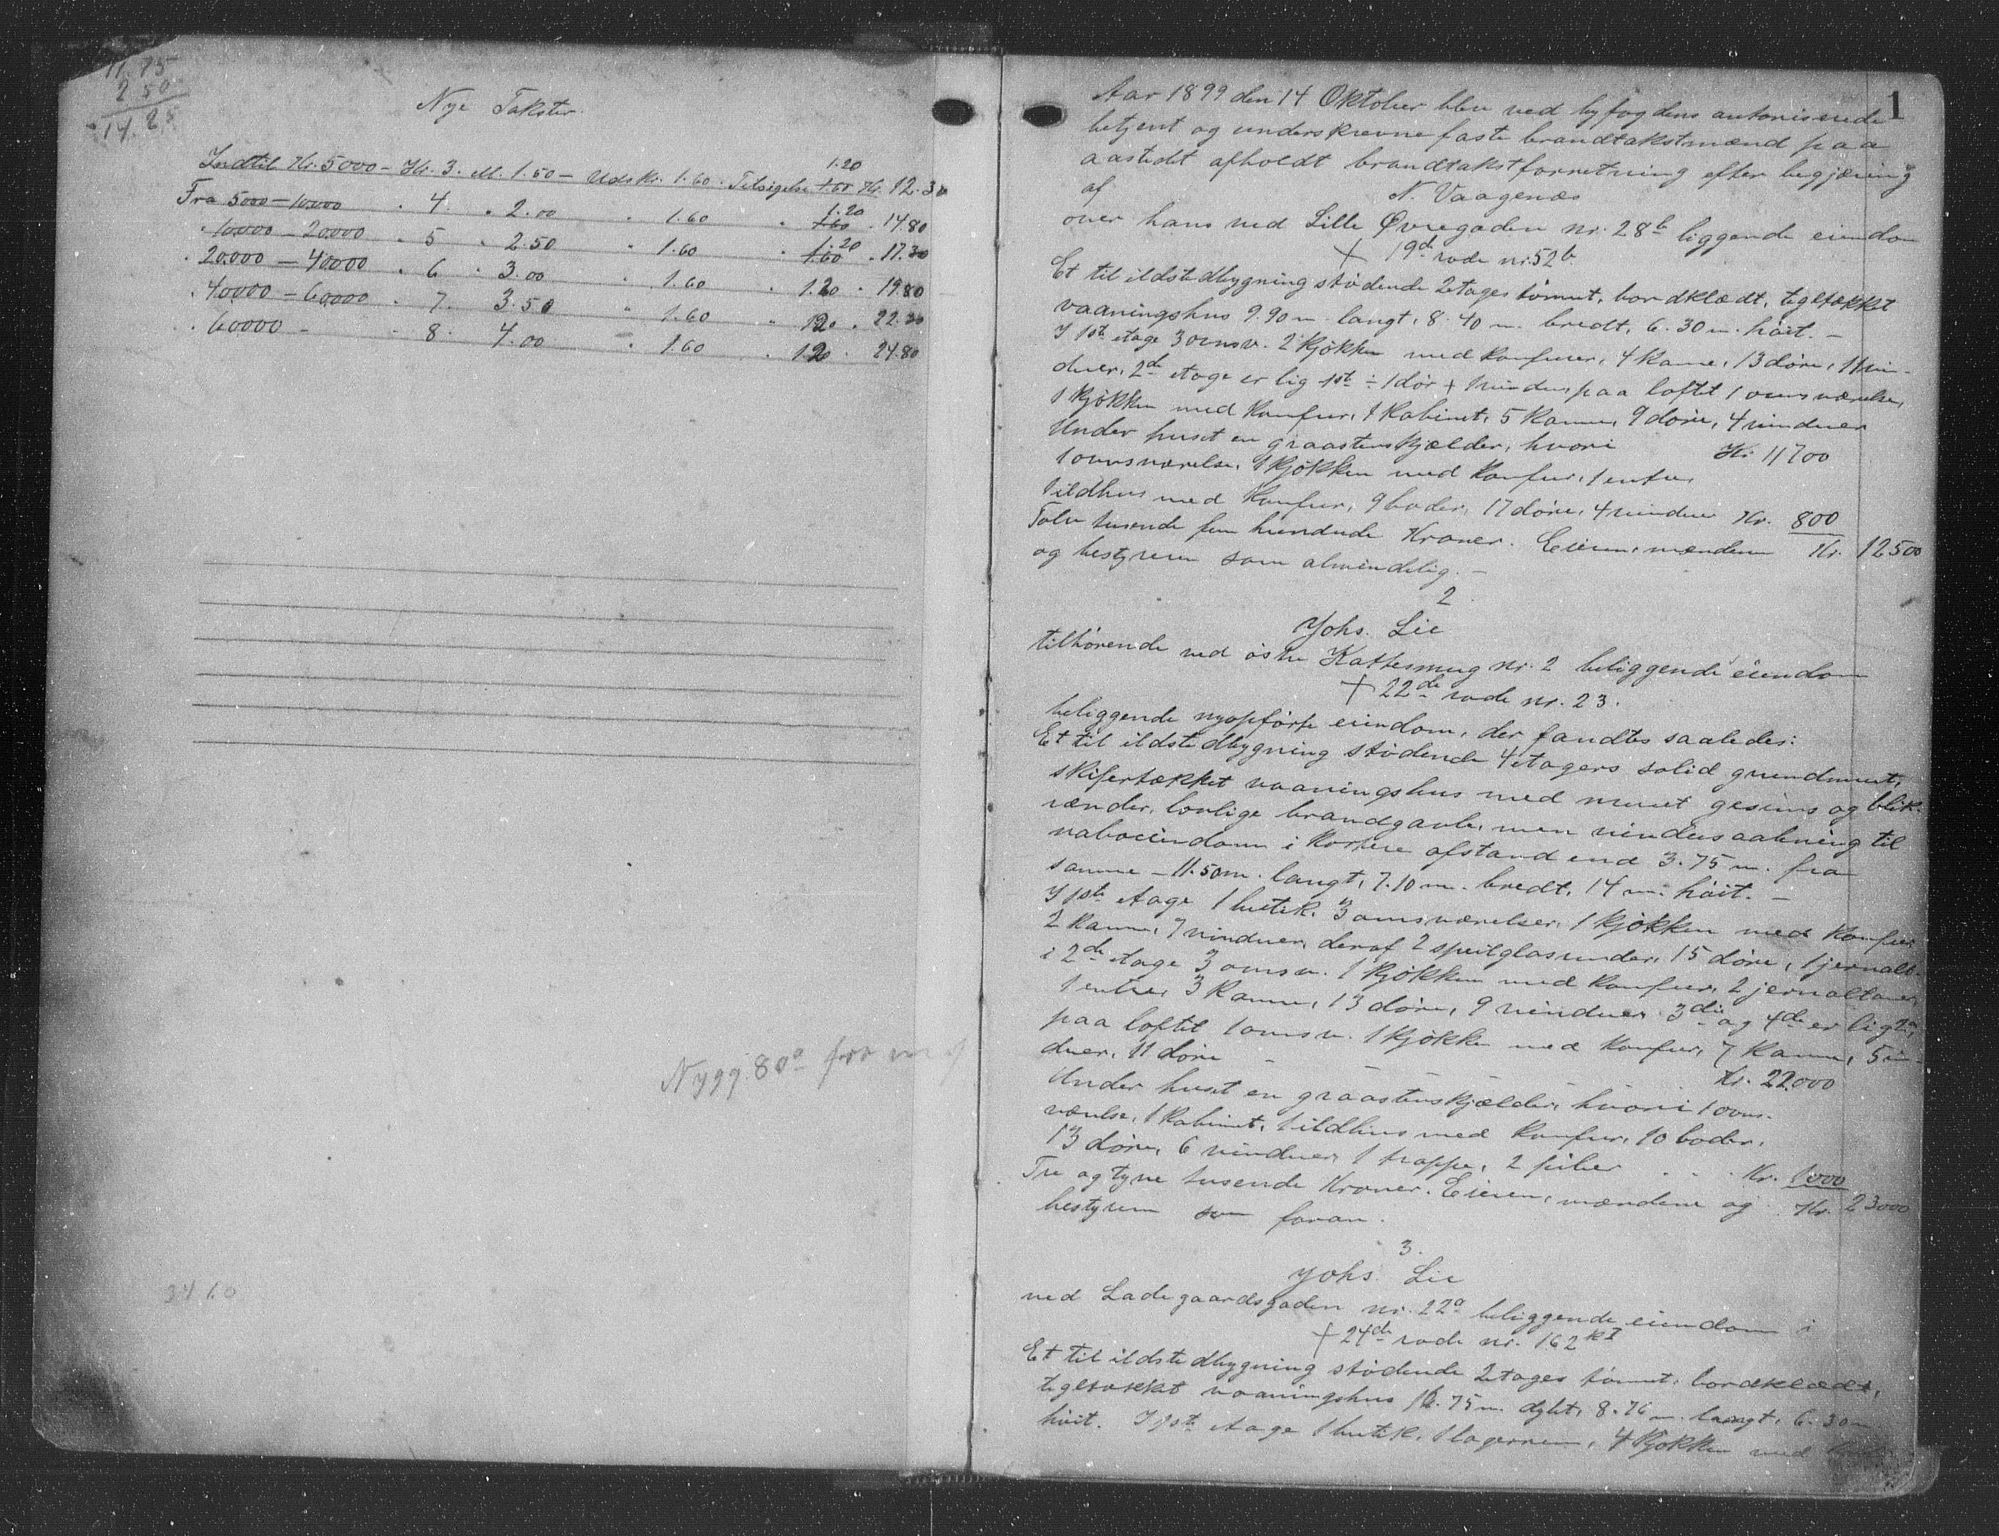 11.75
2 50
14.25
Nye Takster.
Indtil Kr. 5000 - Kr. 3. M. 1.50 - Udskr. 1.60. Tilsigelse 1.20 1.60 Kr. 12.30
Fra 5000-10000 " 4 " 2.00 " 1.60 " 1.20 1.60 " 14.80
" 10000 - 20000 " 5 " 2.50 " 1.60 " 1.20 1.60 " 17.30
" 20000 - 40000 " 6 " 3.00 " 1.60 " 1.20 " 19.80
" 40000 - 60000 " 7. 3.50 " 1.60 " 1.20 " 22.30
" 60000 - " 8. 4.00 " 1.60 " 1.20 " 24.80
80a
2460
1
Aar 1899 den 14 Oktober blev ved byfogdens autoriserede
betjent og underskrevne faste brandtakstmænd paa
aastedt afholdt brandtakstforretning efter begjæring
af N. Vaagenæs
over hans ved Lille Øvregaden nr. 28b liggende eiendom
+ 19de rode nr. 52b.
Et til ildstedbygning stødende 2etages tømret, bordklædt, tegltækket
vaaningshus 9.90 m. langt, 8.40 m. bredt, 6.30 m. høit. -
I 1ste etage 3 ovnsv. 2 kjøkken med komfurer, 4 kamre, 13 døre, 11 vin-
duer, 2den etage er lig 1ste ÷ 1 dør + 1 vindu, paa loftet 1 ovnsværelse,
1 kjøkken med komfur, 1 kabinet, 5 kamre, 9 døre, 4 vinduer
Kr. 11700
Under huset en graastenskjælder, hvori
1 ovnsværelse, 1 kjøkken med komfur, 1 entre,
1 ildhus med komfur, 9 boder, 17 døre, 4 vinduer Kr. 800
Tolv tusende fem hundrede Kroner. Eieren, mændene Kr. 12500
og bestyreren som almindelig. -
2
Johs. Lie
tilhørende ved østre Kattesmug nr. 2 beliggende eiendom
+ 22de rode nr. 23.
beliggende nyopførte eiendom, der fandtes saaledes:
Et til ildstedbygning stødende 4etagers solid grundmuret,
skifertækket vaaningshus med muret gesims og blik-
render, lovlige brandgavle, men vindusaabning til
naboeiendom i kortere afstand end 3.75 m. fra
samme - 11.50 m. langt, 7.10 m. bredt, 14 m. høit. -
I 1ste etage 1 butik, 3 ovnsværelser, 1 kjøkken med komfur
2 kamre, 7 vinduer, deraf 2 speilglasruder, 15 døre, 1 jernalt.
i 2den etage 3 ovnsv. 1 kjøkken med komfur, 2 jernaltaner,
1 entre, 3 kamre, 13 døre, 9 vinduer 3die og 4de er lig 2den,
paa loftet 1 ovnsv. 1 kjøkken med komfur, 7 kamre, 5 vin-
duer, 11 døre - Kr. 22.000
Under huset en graastenskjælder, hvori 1 ovns-
værelse, 1 kabinet, 1 ildhus med komfur, 10 boder,
13 døre, 6 vinduer, 1 trappe, 2 piler . . . Kr. 1000
Tre og tyve tusende Kroner. Eieren, mændene og Kr. 23000
bestyreren som foran.
3.
Johs. Lie
ved Ladegaardsgaden nr. 22a beliggende eiendom i
+ 24de rode nr. 162 kI
Et til ildstedbygning stødende 2etages tømret, bordklædt,
tegltækket vaaningshus 16.75 m. dybt, 8.76 m. langt, 6.30 m.
høit. I 1ste etage 1 butik, 1 lagerrum, 4 kjøkken med